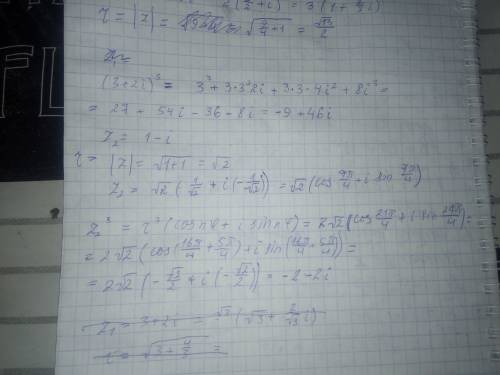 (3/2 + i) = 3(1 + 
r = |z| = = √(9/4+1) = √13/2
z₁
(3+2i)³ = 3³ + 3·3²2i + 3·3·4i² + 8i³ =
= 27 + 54i - 36 - 8i = -9 + 46i
z₂ = 1 - i
r = |z| = √1+1 = √2
z₂ = √2 (1/√2 + i(-1/√2)) = √2 (cos 7π/4 + i sin 7π/4)
z₂³ = r³ (cos nφ + i sin nφ) = 2√2 (cos 21π/4 + i sin 21π/4) =
= 2√2 (cos(16π/4 + 5π/4) + i sin(16π/4 + 5π/4)) =
= 2√2 (-√2/2 + i(-√2/2)) = -2 - 2i
z₁ = 3+2i = √3 (√3 + 2/√3 i)
r = √(3 + 4/3) =